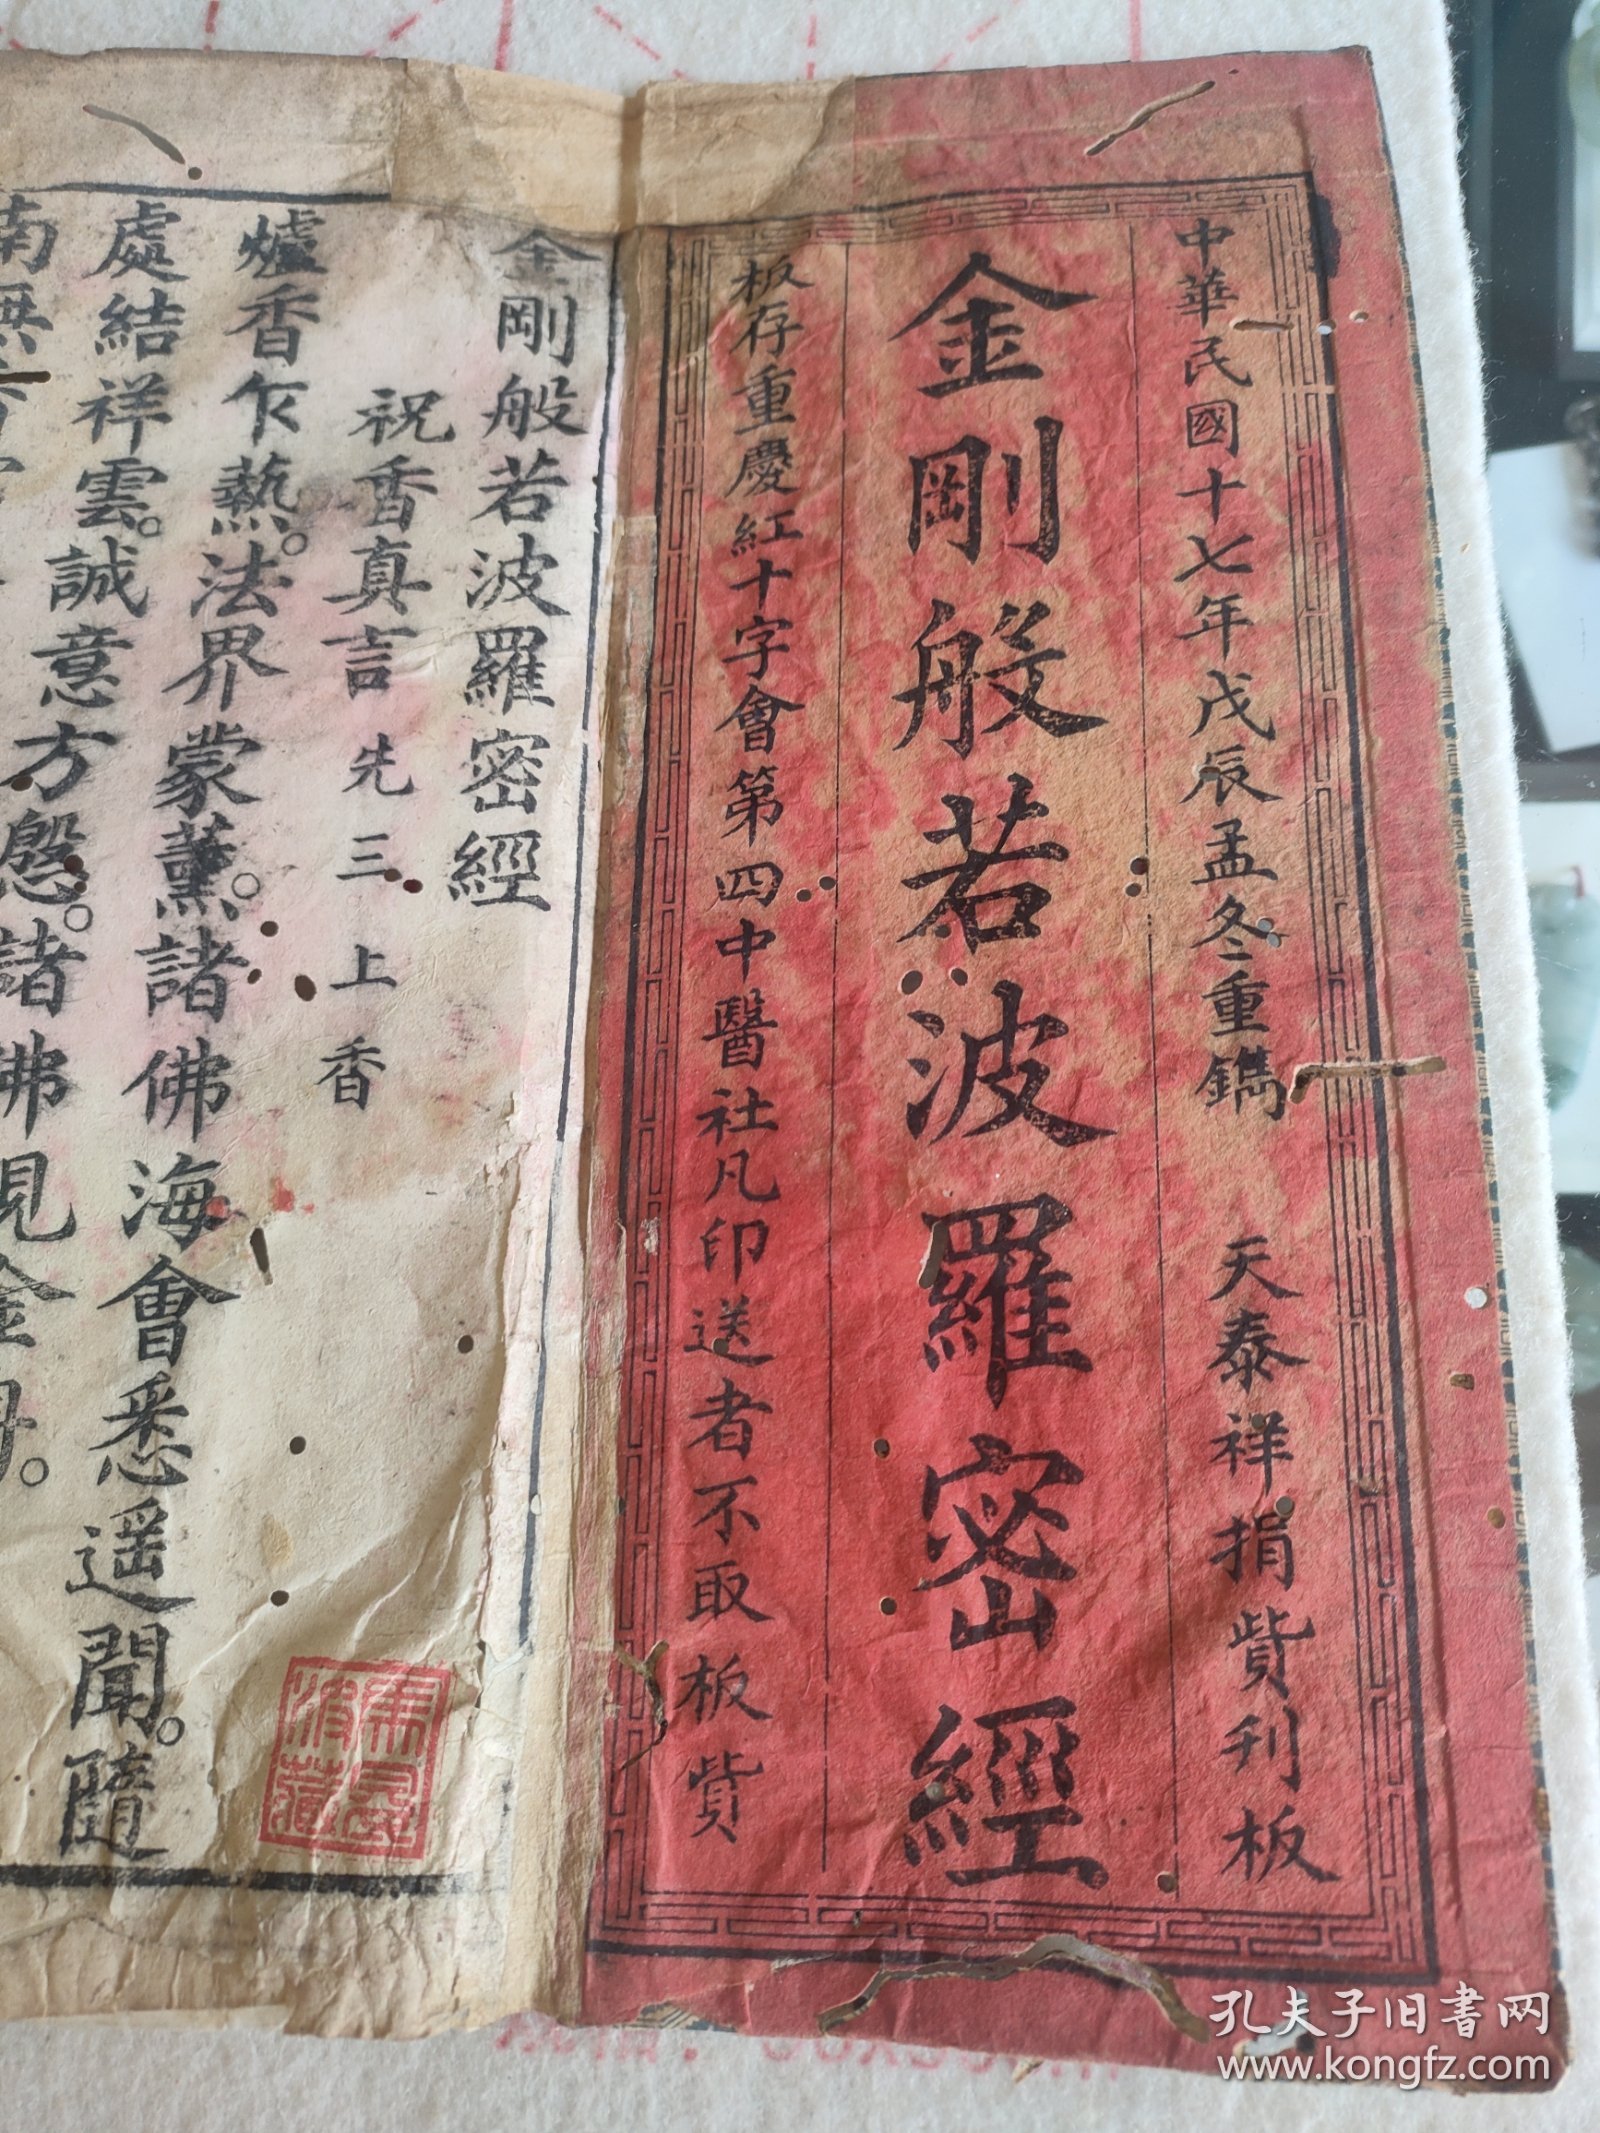 中華民國十七年戊辰孟冬重鐫 天泰祥捐貲刋板
金剛般若波羅密經
板存重慶紅十字會第四中醫社凡印送者不取板貲
金剛般若波羅密經
祝香真言先三上香
爐香乍熱。法界蒙薰。諸佛海會悉遥聞。隨
處結祥雲。誠意方慇。諸佛現金身。
南無
孔夫子旧书网
www.kongfz.com